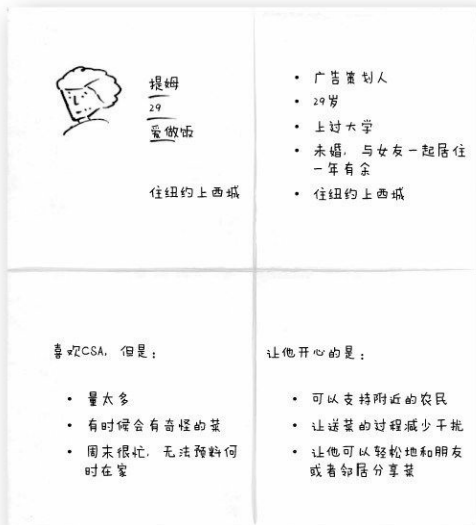 提姆
29
爱做饭
住纽约上西城
• 广告策划人
• 29岁
• 上过大学
• 未婚，与女友一起居住
一年有余
• 住纽约上西城
喜欢CSA，但是：
• 量太多
• 有时候会有奇怪的菜
• 周末很忙，无法预料何
时在家
让他开心的是：
• 可以支持附近的农民
• 让送菜的过程减少干扰
• 让他可以轻松地和朋友
或者邻居分享菜